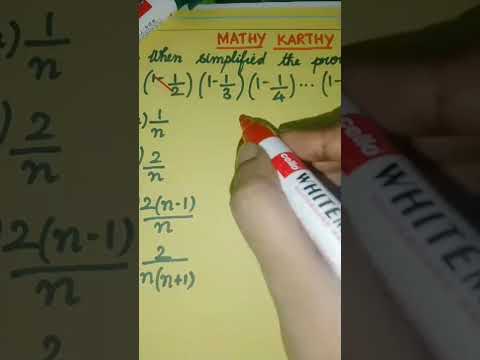 MATHY KARTHY
When simplified the pro
(1-1/2) (1-1/3) (1-1/4) ... (1-
1/n
2/n
2(n-1)/n
2/n(n+1)
cello
WHITEM